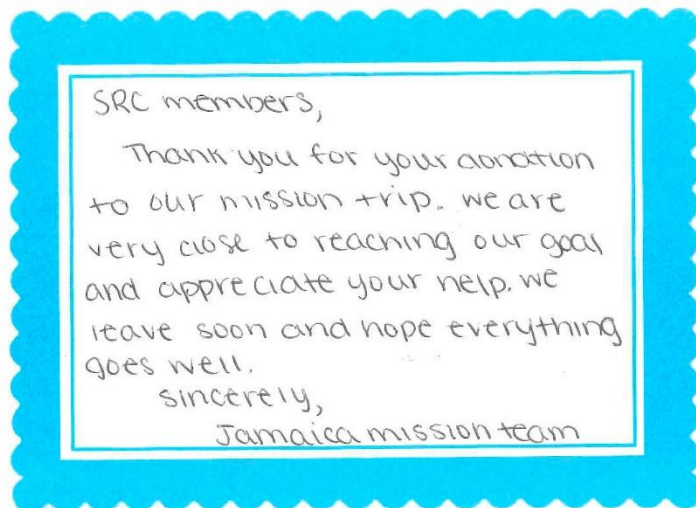 SRC members,
Thank you for your donation
to our mission trip. we are
very close to reaching our goal
and appreciate your help. we
leave soon and hope everything
goes well.
sincerely,
Jamaica mission team